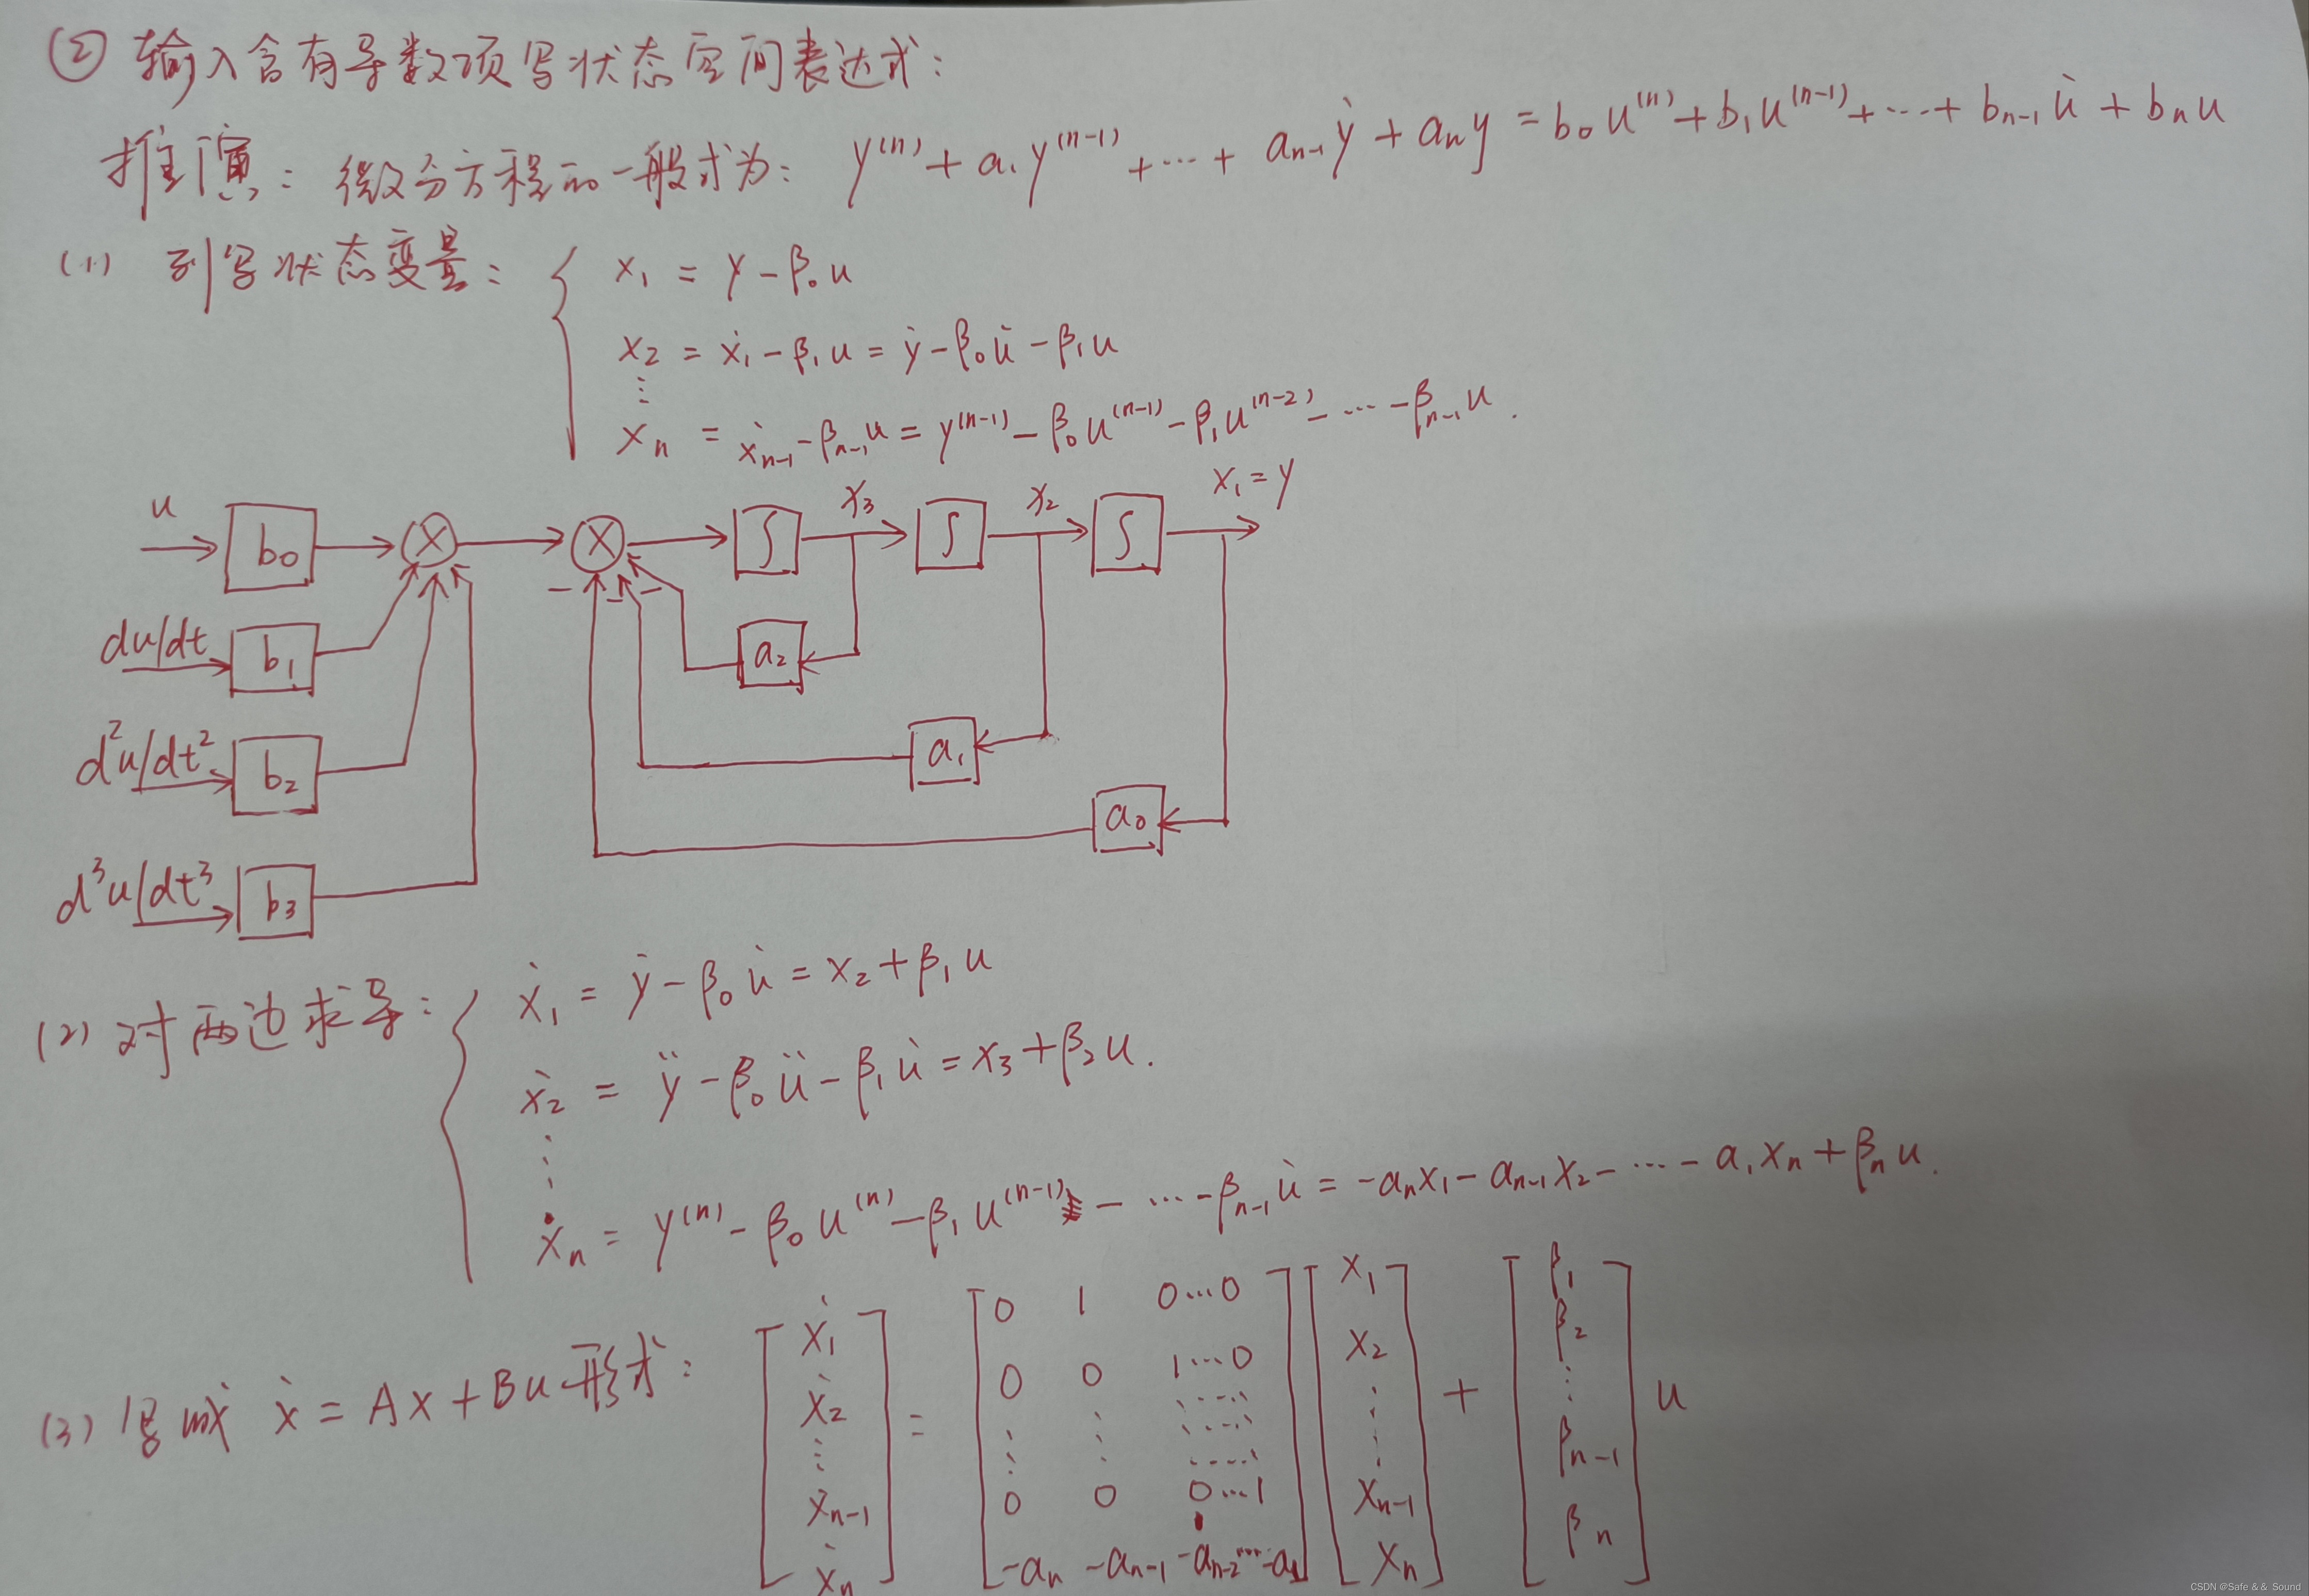 ② 输入含有导数项写状态空间表达式：
推演：微分方程的一般式为：y⁽ⁿ⁾ + a₁y⁽ⁿ⁻¹⁾ + ⋯ + aₙ₋₁ẏ + aₙy = b₀u⁽ⁿ⁾ + b₁u⁽ⁿ⁻¹⁾ + ⋯ + bₙ₋₁u̇ + bₙu
(1) 列写状态变量：{ x₁ = y − β₀u
x₂ = ẋ₁ − β₁u = ẏ − β₀u̇ − β₁u
⋮
xₙ = ẋₙ₋₁ − βₙ₋₁u = y⁽ⁿ⁻¹⁾ − β₀u⁽ⁿ⁻¹⁾ − β₁u⁽ⁿ⁻²⁾ − ⋯ − βₙ₋₁u.
u b₀ × × ∫ x₃ ∫ x₂ ∫ x₁ = y
− − −
du/dt b₁ a₂
d²u/dt² b₂ a₁
a₀
d³u/dt³ b₃
(2) 对两边求导：{ ẋ₁ = ẏ − β₀u̇ = x₂ + β₁u
ẋ₂ = ÿ − β₀ü − β₁u̇ = x₃ + β₂u.
⋮
ẋₙ = y⁽ⁿ⁾ − β₀u⁽ⁿ⁾ − β₁u⁽ⁿ⁻¹⁾ − ⋯ − βₙ₋₁u̇ = −aₙx₁ − aₙ₋₁x₂ − ⋯ − a₁xₙ + βₙu.
(3) 写成 ẋ = Ax + Bu 形式：
[ẋ₁ ẋ₂ ⋮ ẋₙ₋₁ ẋₙ] =
[0 1 0⋯0
0 0 1⋯0
⋮ ⋮ ⋯
0 0 0⋯1
−aₙ −aₙ₋₁ −aₙ₋₂⋯−a₁]
[x₁ x₂ ⋮ xₙ₋₁ xₙ] + [β₁ β₂ ⋮ βₙ₋₁ βₙ] u
CSDN @Safe & & Sound